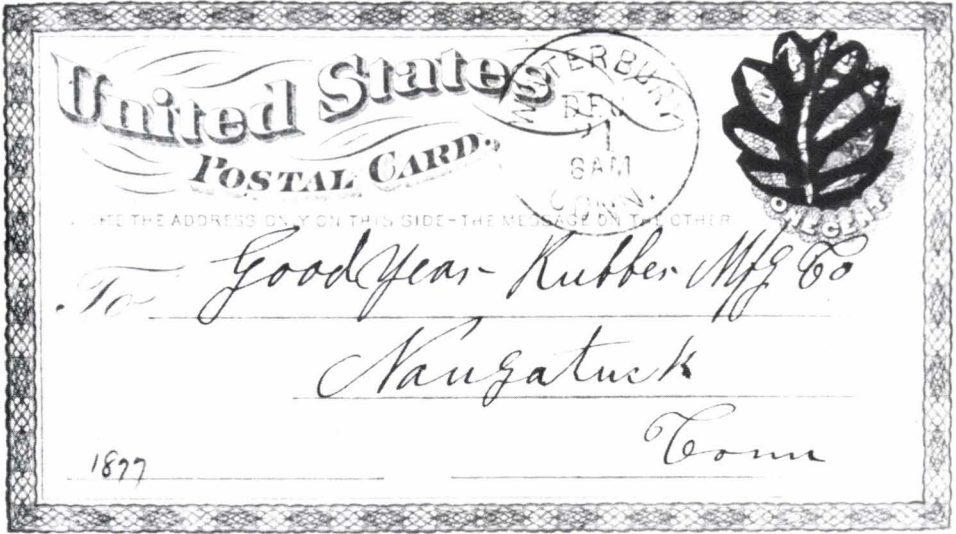 United States
POSTAL CARD.
WATERBURY
DEC
21
6 AM
CONN.
ONE CENT
WRITE THE ADDRESS ONLY ON THIS SIDE - THE MESSAGE ON THE OTHER
To Good Year Rubber Mfg Co
Naugatuck
Conn
1877